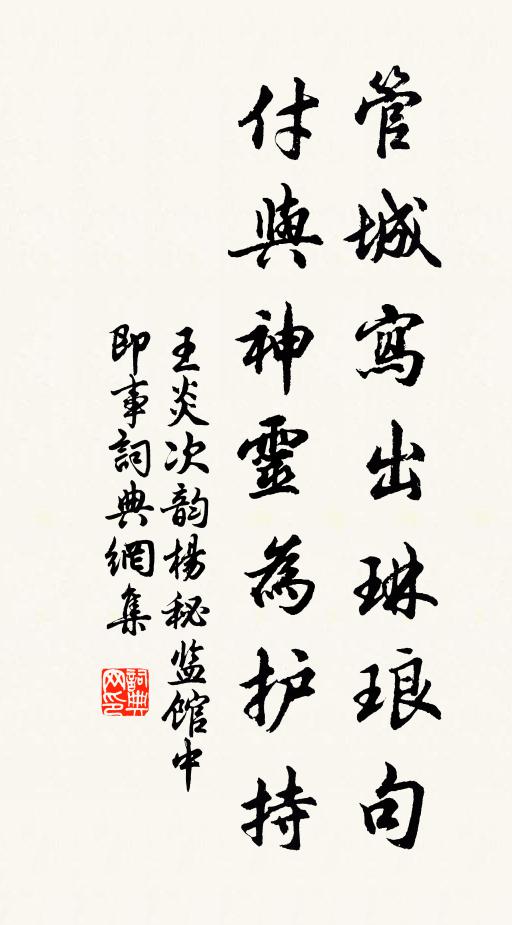 管城寫出琳琅句
付與神靈為护持
王炎次韵楊秘监馆中
即事詞典網集
詞典网印